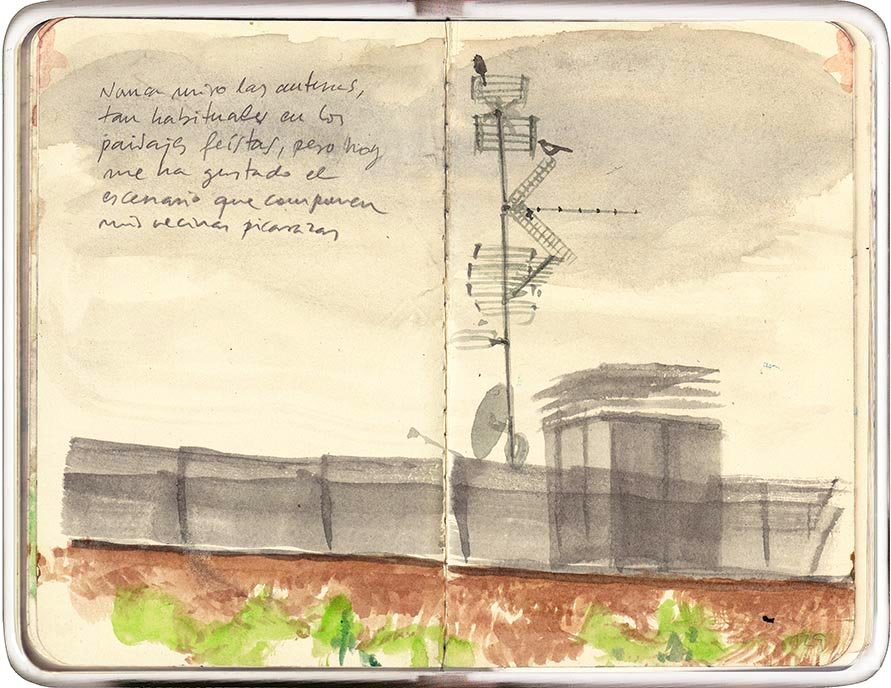 Nunca miro las antenas,
tan habituales en los
paisajes feístas, pero hoy
me ha gustado el
escenario que componen
mis vecinas picarazas